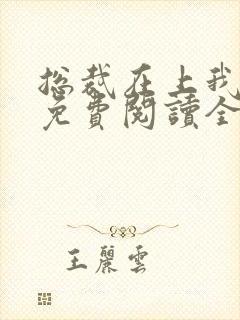 总裁在上我
免費閱讀全
王麗雲